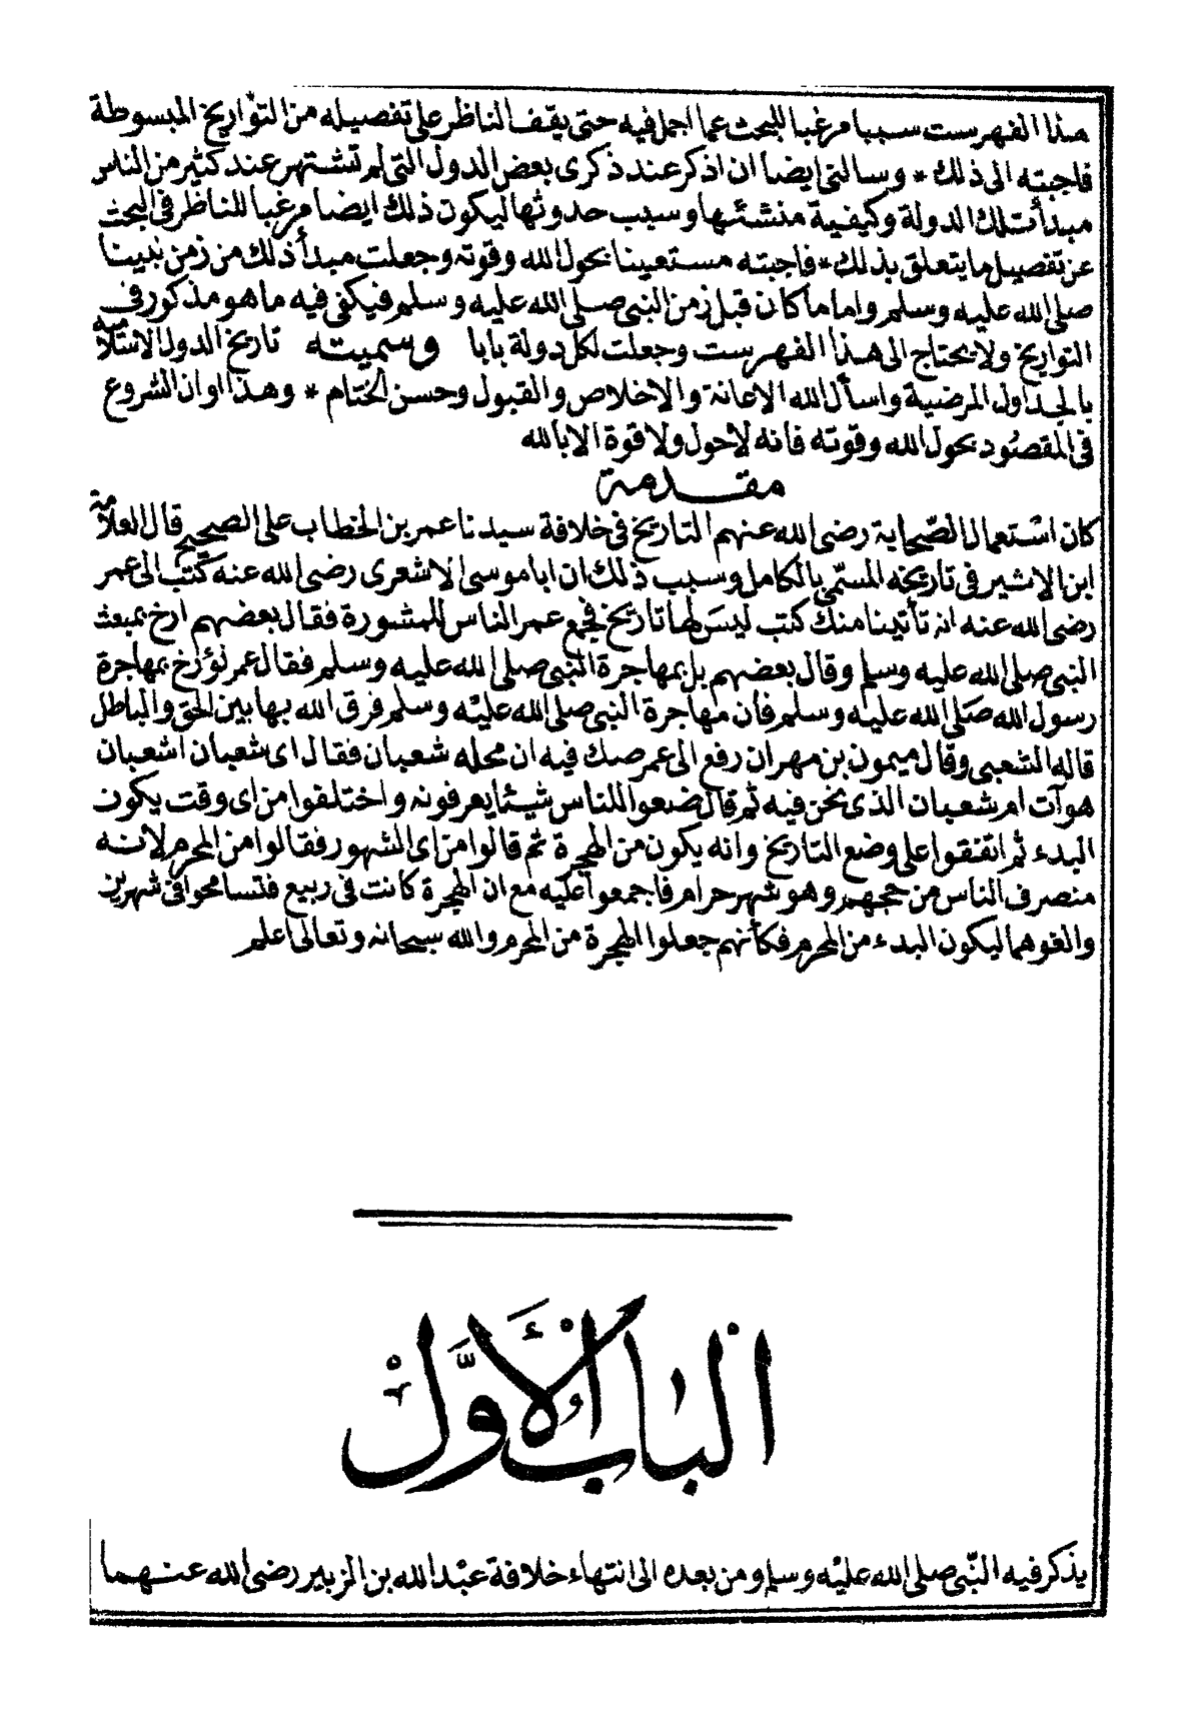 هذا الفهرست سببا مرغبا للبحث عما اجمل فيه حتى يقف الناظر على تفصيله من التواريخ المبسوطة
فاجبته الى ذلك * وسالنى ايضا ان اذكر عند ذكرى بعض الدول التى لم تشتهر عند كثير من الناس
مبدأ تلك الدولة وكيفية منشئها وسبب حدوثها ليكون ذلك ايضا مرغبا للناظر فى البحث
عن تفصيل ما يتعلق بذلك * فاجبته مستعينا بحول الله وقوته وجعلت مبدأ ذلك من زمن نبينا
صلى الله عليه وسلم واما ما كان قبل زمن النبى صلى الله عليه وسلم فيكفى فيه ما هو مذكور فى
التواريخ ولا يحتاج الى هذا الفهرست وجعلت لكل دولة بابا وسميته تاريخ الدول الاسلامية
بالجداول المرضية واسأل الله الاعانة والاخلاص والقبول وحسن الختام * وهذا اوان الشروع
فى المقصود بحول الله وقوته فانه لاحول ولا قوة الا بالله
مقدمة
كان استعمال الصحابة رضى الله عنهم التاريخ فى خلافة سيدنا عمر بن الخطاب على الصحيح قال العلامة
ابن الاثير فى تاريخه المسمى بالكامل وسبب ذلك ان ابا موسى الاشعرى رضى الله عنه كتب الى عمر
رضى الله عنه انه تأتينا منك كتب ليس لها تاريخ فجمع عمر الناس للمشورة فقال بعضهم ارخ بمبعث
النبى صلى الله عليه وسلم وقال بعضهم بل بمهاجرة النبى صلى الله عليه وسلم فقال عمر نؤرخ بمهاجرة
رسول الله صلى الله عليه وسلم فان مهاجرة النبى صلى الله عليه وسلم فرق الله بها بين الحق والباطل
قاله الشعبى وقال ميمون بن مهران رفع الى عمر صك فيه ان محله شعبان فقال اى شعبان اشعبان
هو آت ام شعبان الذى نحن فيه ثم قال ضعوا للناس شيئا يعرفونه واختلفوا من اى وقت يكون
البدء ثم اتفقوا على وضع التاريخ وانه يكون من الهجرة ثم قالوا من اى الشهور فقالوا من المحرم لانه
منصرف الناس من حجهم وهو شهر حرام فاجمعوا عليه مع ان الهجرة كانت فى ربيع فتسامحوا فى شهرين
والغوهما ليكون البدء من المحرم فكأنهم جعلوا الهجرة من المحرم والله سبحانه وتعالى اعلم
الْباب الْأَوَّلْ
يذكر فيه النبى صلى الله عليه وسلم ومن بعده الى انتهاء خلافة عبد الله بن الزبير رضى الله عنهما